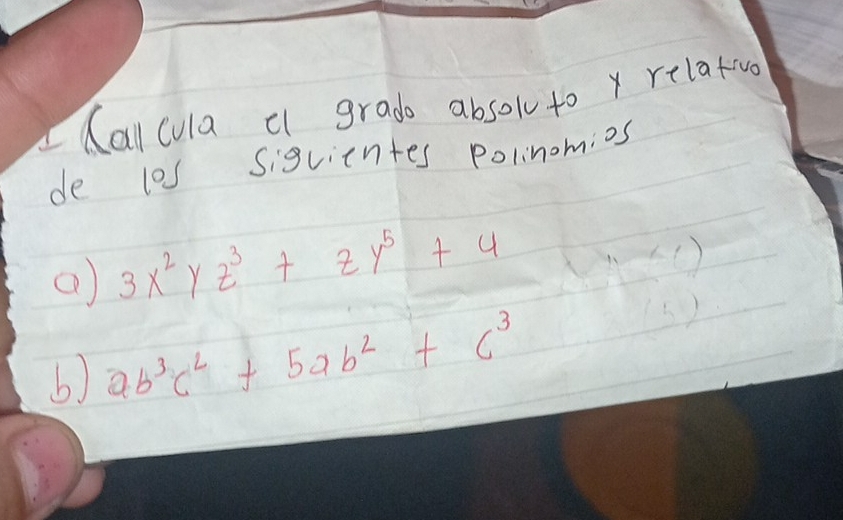 1 Kallcula el grado absoluto y relativo
de los siguientes Polinomios
a) 3x²yz³ + zy⁵ + 4
b) ab³c² + 5ab² + c³